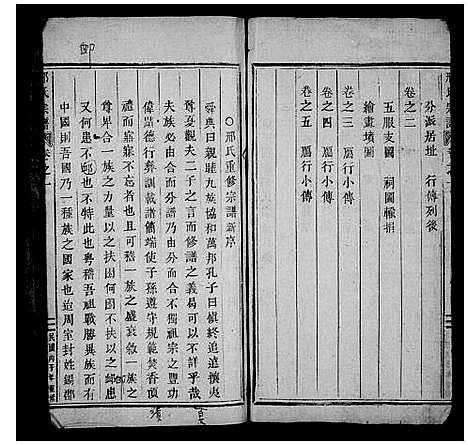 邢氏宗譜
分派居址 行傳列後
卷之二
五服支圖 祠圖
繪畫墳圖
卷之三 屬行小傳
卷之四 屬行小傳
卷之五 屬行小傳
○邢氏重修宗譜新序
舜典曰親睦九族協和萬邦孔子曰慎終追遠攘夷
尊夏觀夫二子之言而修譜之義曷可以不詳乎哉
夫族必由合而分譜乃由分而合不獨祖宗之豐功
偉鼎德行彝訓載譜簡端使子孫遵守規範焚香頂
禮而寤寐不忘者也且可考一族之盛衰敘一族之
尊卑合一族之大力量以之扶因何国不扶以之
又何患不也不特此也粵稽吾祖戰勝異族而有
中國則吾國乃一種族之國家也迨周室封姓錫
邢氏宗譜 卷之一
民國丙子年重修